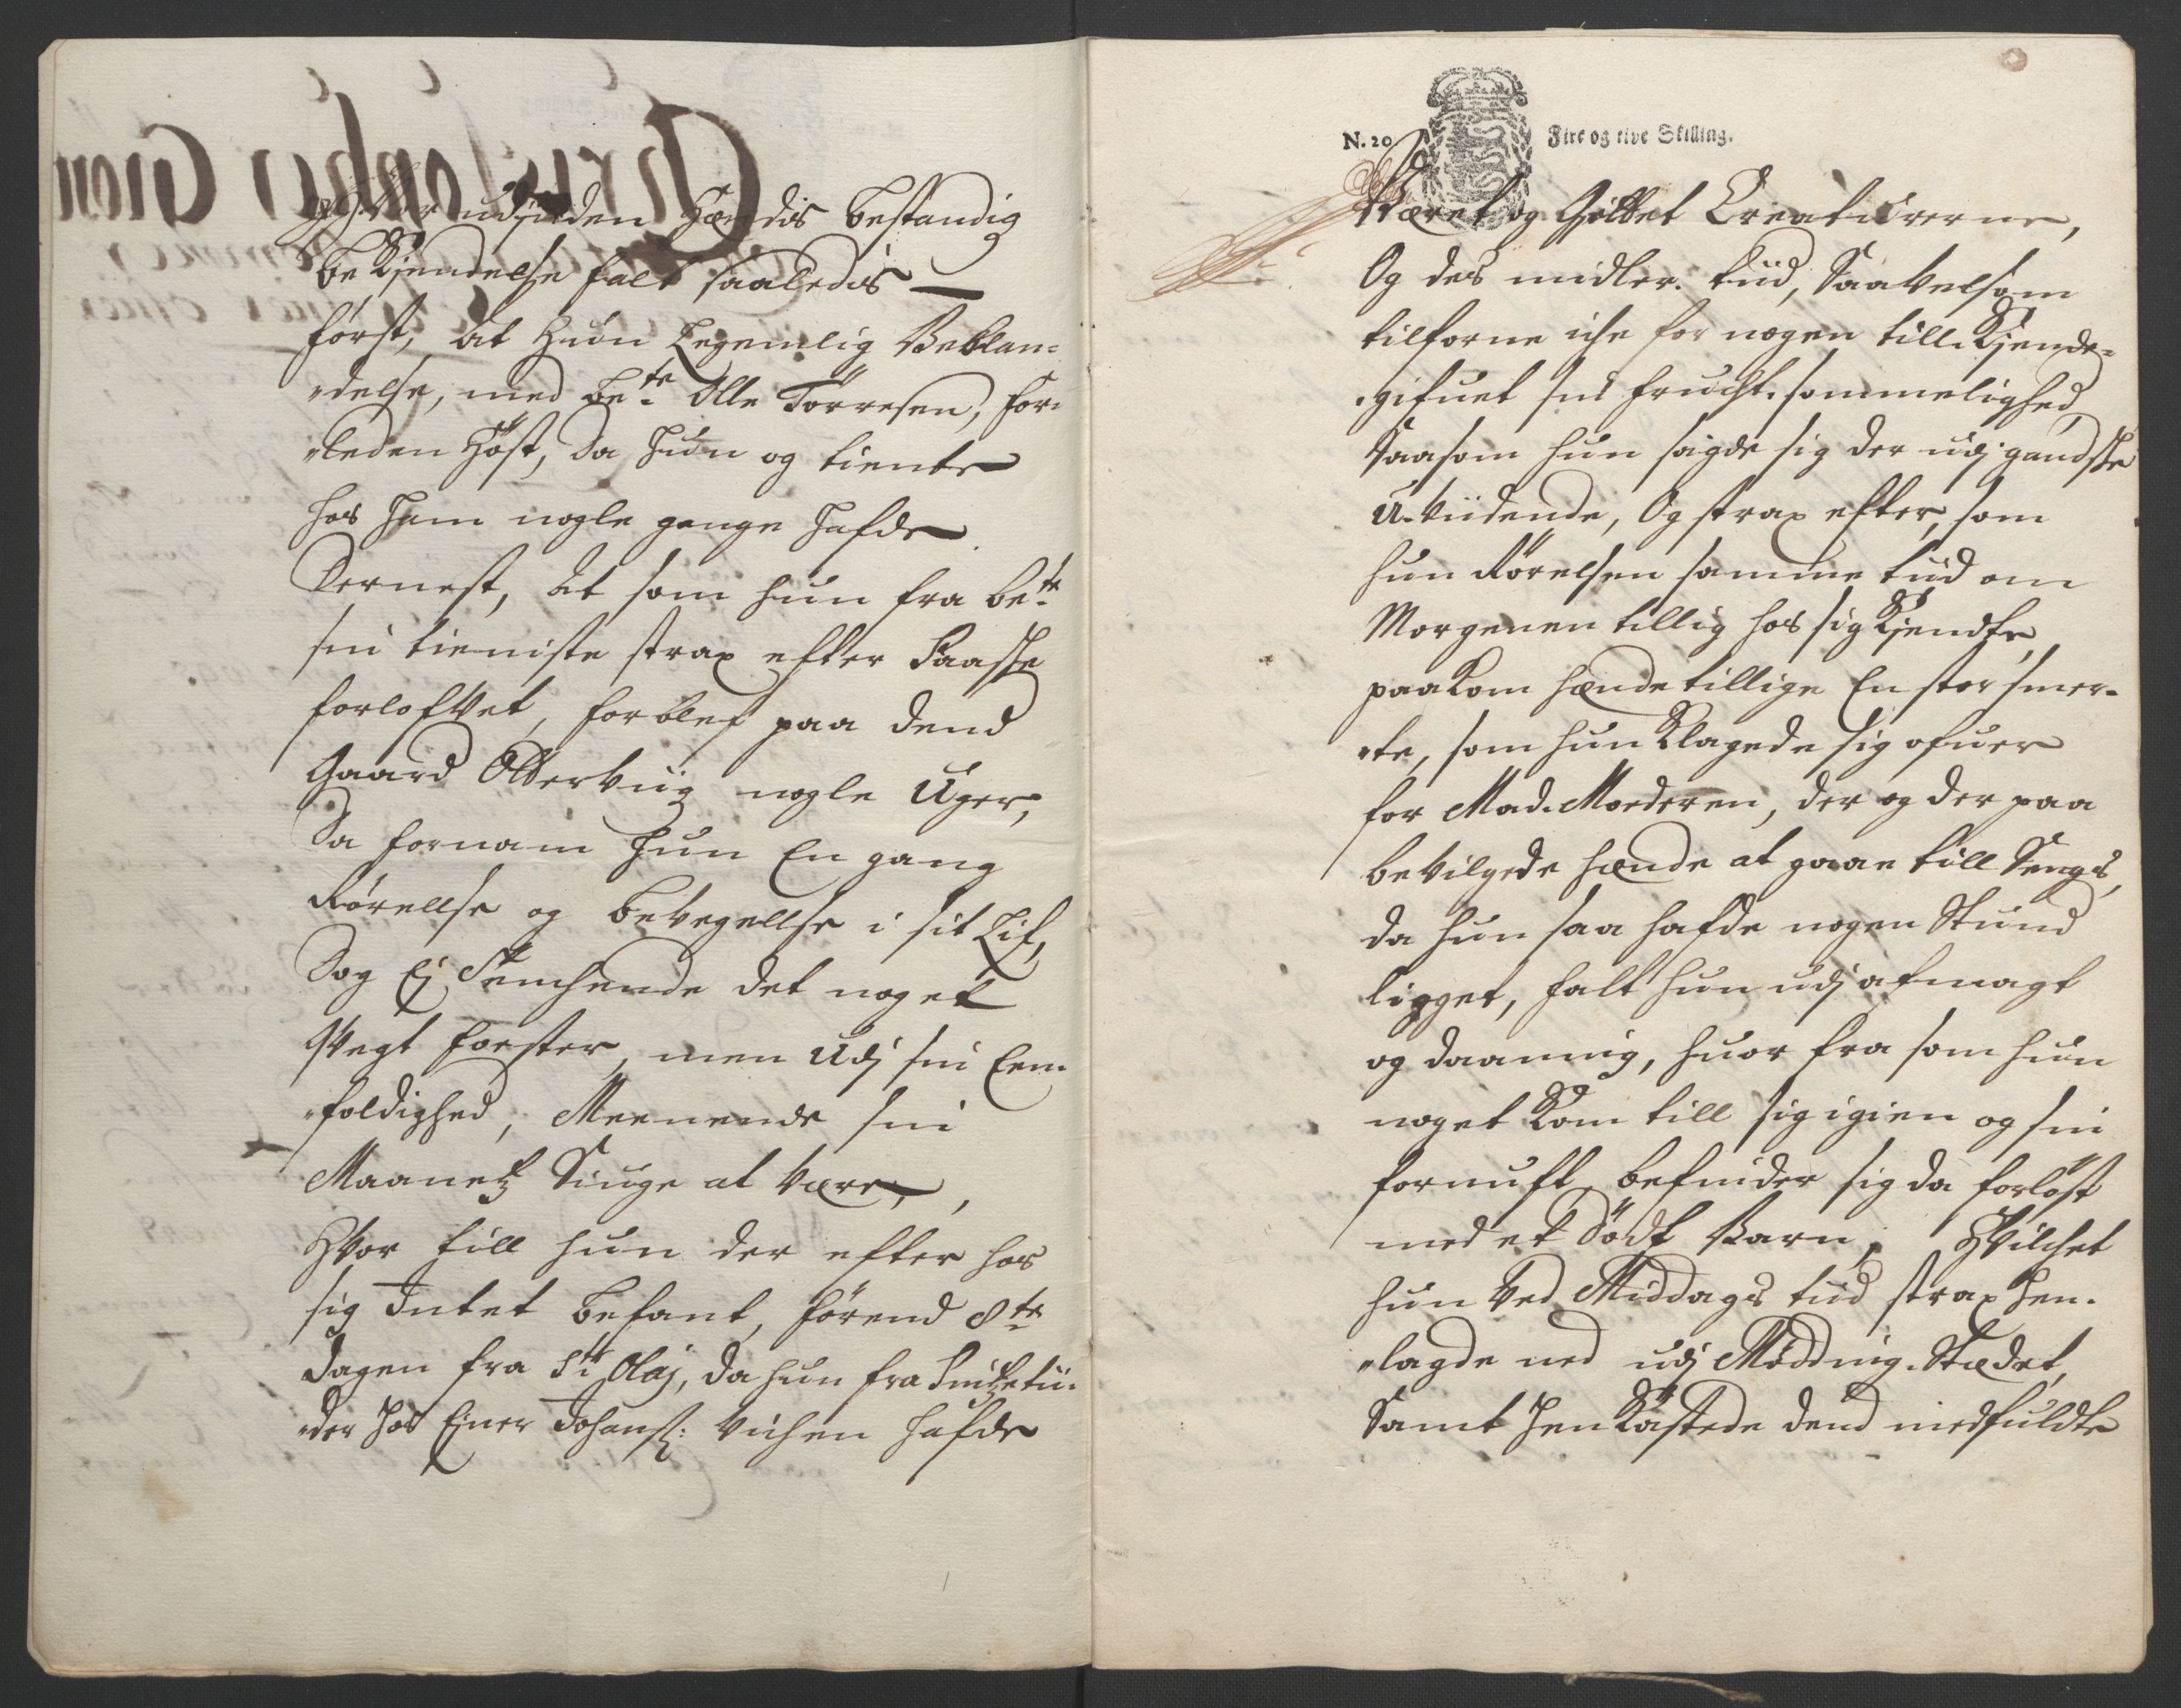 Hvor udjnden Hændis bestandig
bekjendelse falt saaledis
først, At Huun Legemlig Beblan-
delse, med bete Olle Törresen, for-
leden Höst, da huun og tiente
hos ham nogle gange hafde
Dernest, At som hun fra bete
sin tieniste strax efter Paasche
forlofvet, forblef paa dend
Gaard Otterviig nogle Uger,
Da fornam hun En gang
Rörellse og bevegellse i sit Lif,
Dog Ej tenchende det noget
Svegt foester, men Udj sin Een-
foldighed, Meenende sin
Maanetz Siuge at være,
Hvor till hun der efter hos
sig Intet befant, förend 8te
dagen fra St Olaj, da hun fra
der hos Einer Johans: vichen hafde
N. 20
Fire og tive Skilling.
Været og Creaturerne,
Og des midler. tiid, Saavelsom
tilforne iche for nogen till. kjende-
gifuet sin frucht. sommelighed,
Saasom hun sagde sig der udj gandske
U. viidende, Og strax efter, som
hun Rörelsen samme tiid om
Morgenen tillig hos sig kjendte,
paakom hende tillige En stor smer-
te, som hun klagede sig ofuer
for Mad. Moderen, der og der paa
bevilgede hænde at gaae till Sengs,
da hun saa hafde nogen Stund
ligget, falt hun udj afmagt
og daaning, huor fra som hun
noget kom till sig igien og sin
fornuft, befinder sig da forlöst
med et Dödt Barn, Hvilchet
hun ved Middags tiid strax hen-
lagde ned udj Mödding. Stædet,
Samt henkastede dend medfuldte